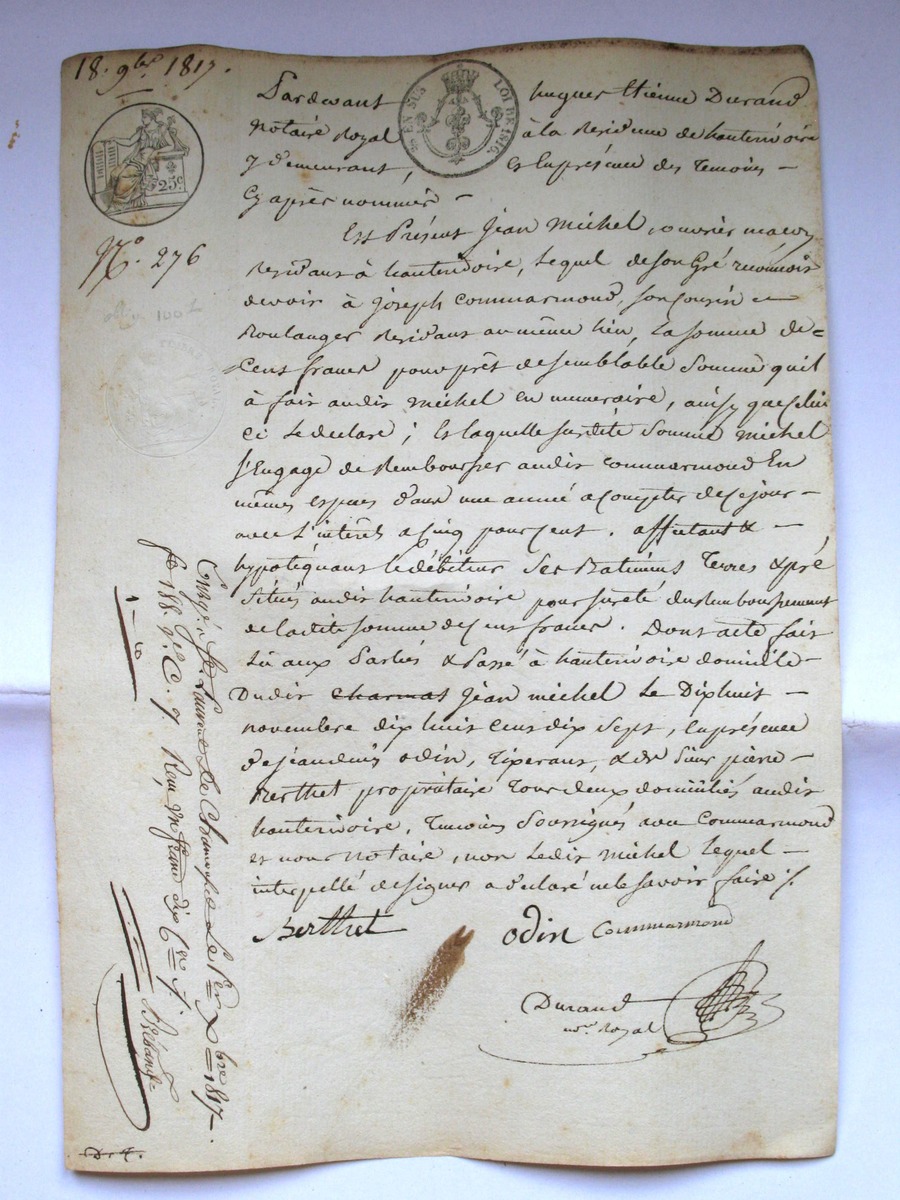 18. 9bre 1817.
EN SUS LOI DE 1816.
25c
No. 276
oblig. 100
Pardevant hugues Etienne Durand
Notaire Royal à la Residence de hauterivoire
y demeurant, et en présence des Temoins
Cy après nommés
Est Présent Jean Michel, ouvrier maçon
Residant à hauterivoire, Lequel de son Gré reconnoit
devoir à Joseph Commarmond, son Cousin
Boulanger Residant au même lieu, La somme de
Cent francs pour prêt de semblable Somme quil
à fait audit Michel en numeraire, ainsy que celui
ci Le declare ; Et laquelle susdite Somme Michel
s'Engage de Rembourser audit Commarmond En
mêmes espèces dans une année a Compter de Ce jour
avec L'intérêt a Cinq pour Cent. affectant &
hypotéquant le débiteur Ses Batimens Terres & pré
Situés audit hauterivoire pour sureté du Remboursement
de la dite somme de Cent francs. Dont acte fait
Lu aux Parties & Passé à hauterivoire domicile
Dudit Charmat Jean Michel Le Dix huit
novembre dix huit cent dix Sept, En présence
de jean denis Odin, Tiserant, & de Sieur pierre
Berthet propriétaire Tous deux domiciliés audit
hauterivoire, Temoins Soussignés avec Commarmond
et nous Notaire, non Ledit Michel Lequel
interpellé de signer a déclaré ne le savoir faire ./.
Berthet Odin Commarmond
Durand
nre Royal
Enregé. à St. Laurent De Chamousset Le 1er Xbre 1817
fo 188. Vo C. 9. Reçu Un franc dix Cmes